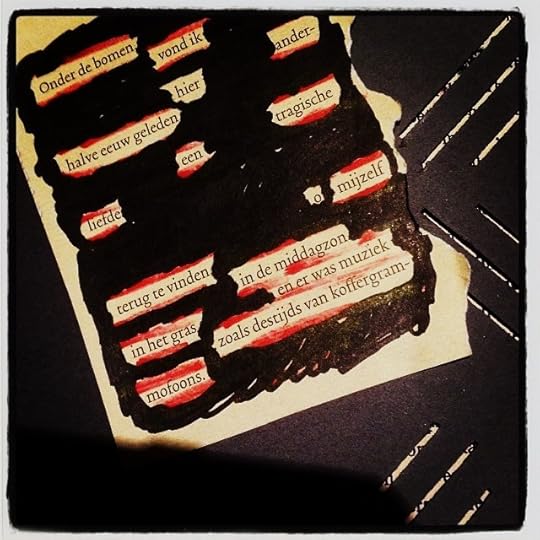 Onder de bomen vond ik
hier ander-
halve eeuw geleden
een tragische
liefde
o mijzelf
terug te vinden
in de middagzon
in het gras en er was muziek
zoals destijds van koffergram-
mofoons.